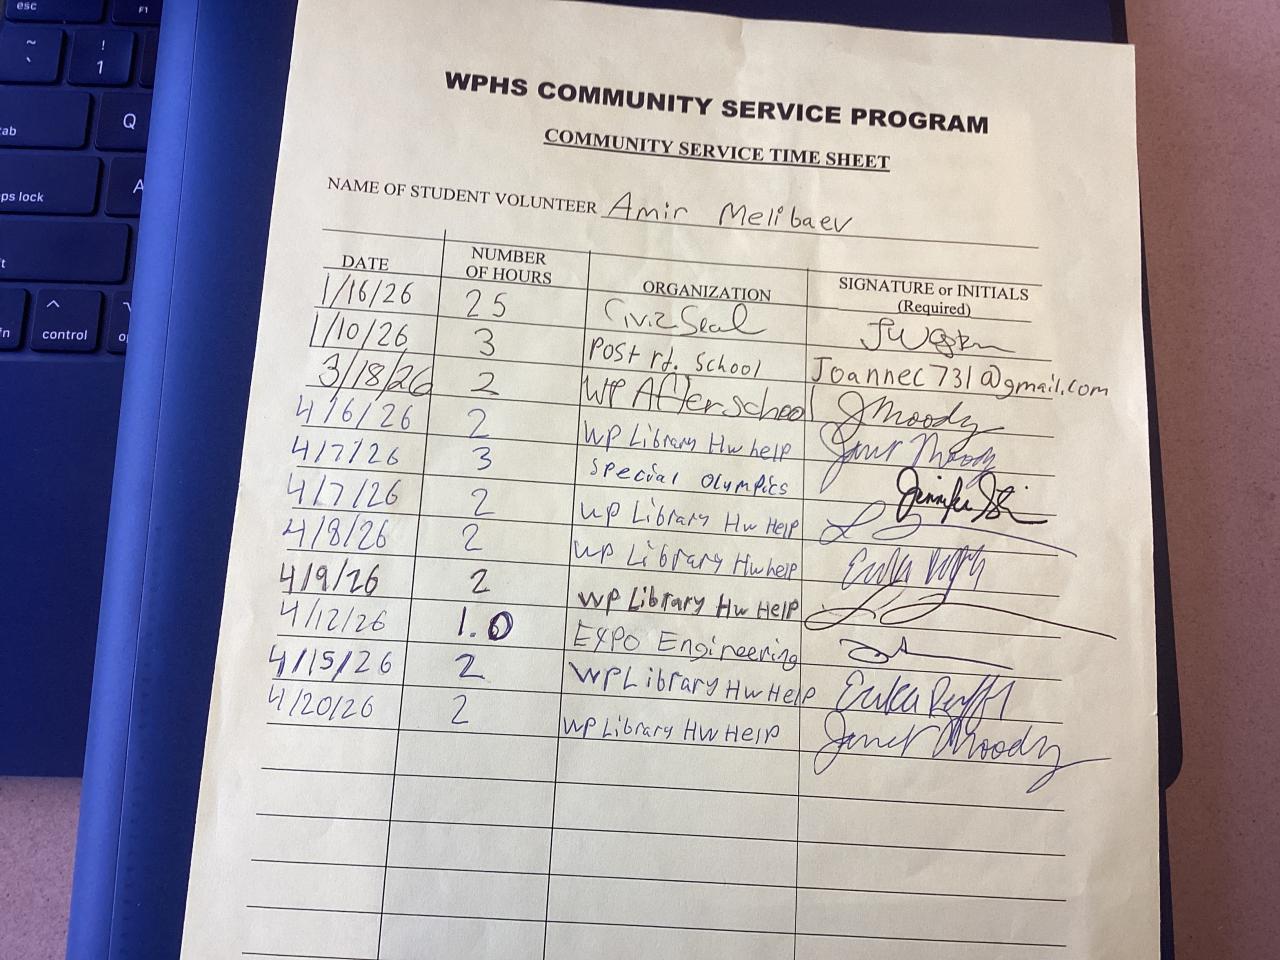 esc
F1
~
`
!
1
tab
Q
caps lock
A
^
control
WPHS COMMUNITY SERVICE PROGRAM
COMMUNITY SERVICE TIME SHEET
NAME OF STUDENT VOLUNTEER Amir Melibaev
DATE NUMBER OF HOURS ORGANIZATION SIGNATURE or INITIALS (Required)
1/16/26 25 Civic Seal
1/10/26 3 Post rd. School Joannec731@gmail.com
3/18/26 2 WP After school JMoody
4/6/26 2 WP Library Hw help Janet Moody
4/7/26 3 Special Olympics Jennifer
4/7/26 2 WP Library Hw Help
4/8/26 2 WP Library Hw help Erika
4/9/26 2 WP Library Hw Help
4/12/26 1.0 EXPO Engineering
4/15/26 2 WP Library Hw Help Erika
4/20/26 2 WP Library HW Help Janet Moody